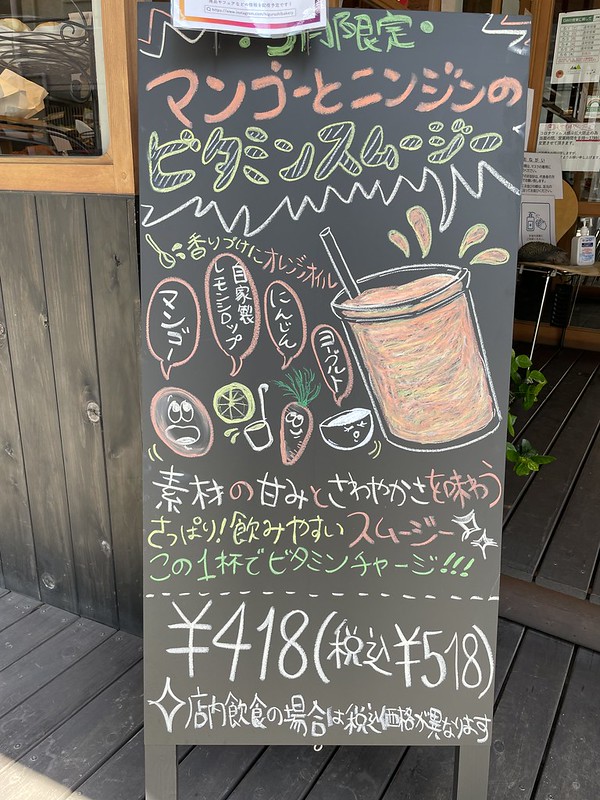 マンゴーとニンジンの
ビタミンスムージー
香りづけにオレンジオイル
マンゴー
自家製
レモンシロップ
にんじん
ヨーグルト
素材の甘みとさわやかさを味わう
さっぱり!飲みやすいスムージー
この1杯でビタミンチャージ!!!
¥418(税込¥518)
店内飲食の場合は税込価格が異なります